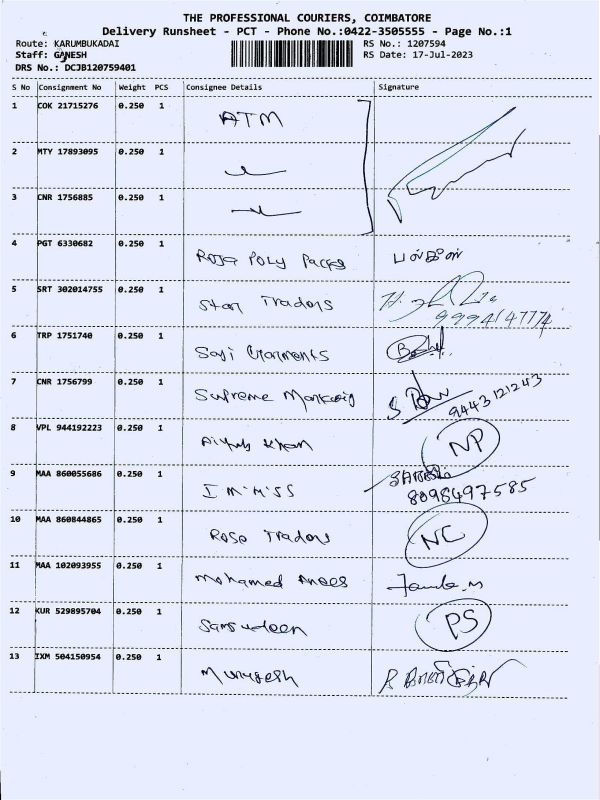 THE PROFESSIONAL COURIERS, COIMBATORE
Delivery Runsheet - PCT - Phone No.:0422-3505555 - Page No.:1
Route: KARUMBUKADAI RS No.: 1207594
Staff: GANESH RS Date: 17-Jul-2023
DRS No.: DCJB120759401
S No Consignment No Weight PCS Consignee Details Signature
1 COK 21715276 0.250 1 ATM
2 MTY 17893095 0.250 1
3 CNR 1756885 0.250 1
4 PGT 6330682 0.250 1 Roja Poly Packs
5 SRT 302014755 0.250 1 Star Tradors
9994147774
6 TRP 1751740 0.250 1 Saji Garments
7 CNR 1756799 0.250 1 Supreme
9443121243
8 VPL 944192223 0.250 1 Khan NP
9 MAA 860055686 0.250 1 I M.H.SS
8098497585
10 MAA 860844865 0.250 1 Rose Tradors NC
11 MAA 102093955 0.250 1 Mohamed Anees
12 KUR 529895704 0.250 1 Samsudeen PS
13 IXM 504150954 0.250 1 Murugesh